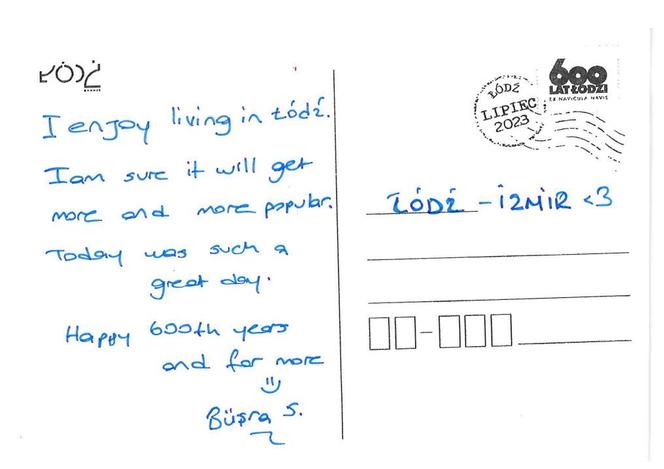 ŁÓDŹ
I enjoy living in Łódź.
I am sure it will get
more and more popular.
Today was such a
great day.
Happy 600th years
and for more
Büşra S.
ŁÓDŹ
LIPIEC
2023
600
LAT ŁODZI
EX NAVICULA NAVIS
ŁÓDŹ - İZMİR <3